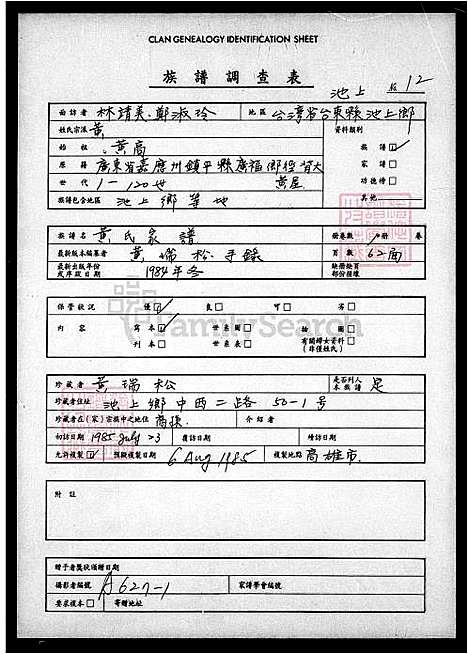 CLAN GENEALOGY IDENTIFICATION SHEET
族譜調查表
池上 12
面訪者 林靖美、鄭淑玲 地區 台灣省台東縣池上鄉
姓氏宗派 黃 資料類別
始祖 黃高 族譜 ☑
原籍 廣東省嘉應州鎮平縣廣福鄉徑背大黃屋 家譜 □
世代 1—120世 功德榜 □
族譜包含地區 池上鄉等地 其他
族譜名 黃氏家譜 冊卷數 1冊 卷
最新版本編纂者 黃瑞松手錄 頁數 62面
最新出版年份或序跋日期 1984年冬 缺冊缺頁部份描述
保管狀況 優 ☑ 良 □ 可 □ 劣 □
內容 寫本 ☑ 世系圖 □ 插圖 □
刊本 □ 世系表 □ 有關婦女資料(非僅姓氏) □
FamilySearch
珍藏者 黃瑞松 是否列入本族譜 是
珍藏者住址 池上鄉中西二路50-1號
珍藏者在(家)宗族中之地位 裔孫 介紹者
初訪日期 1985 July 23 復訪日期 續訪日期
允許複製 ☑ 預擬複製日期 6 Aug 1985 複製地點 高雄市
附註
贈予者獎狀頒贈日期
攝影者編號 A627-1 家譜學會編號
要求複本 □ 寄贈地址